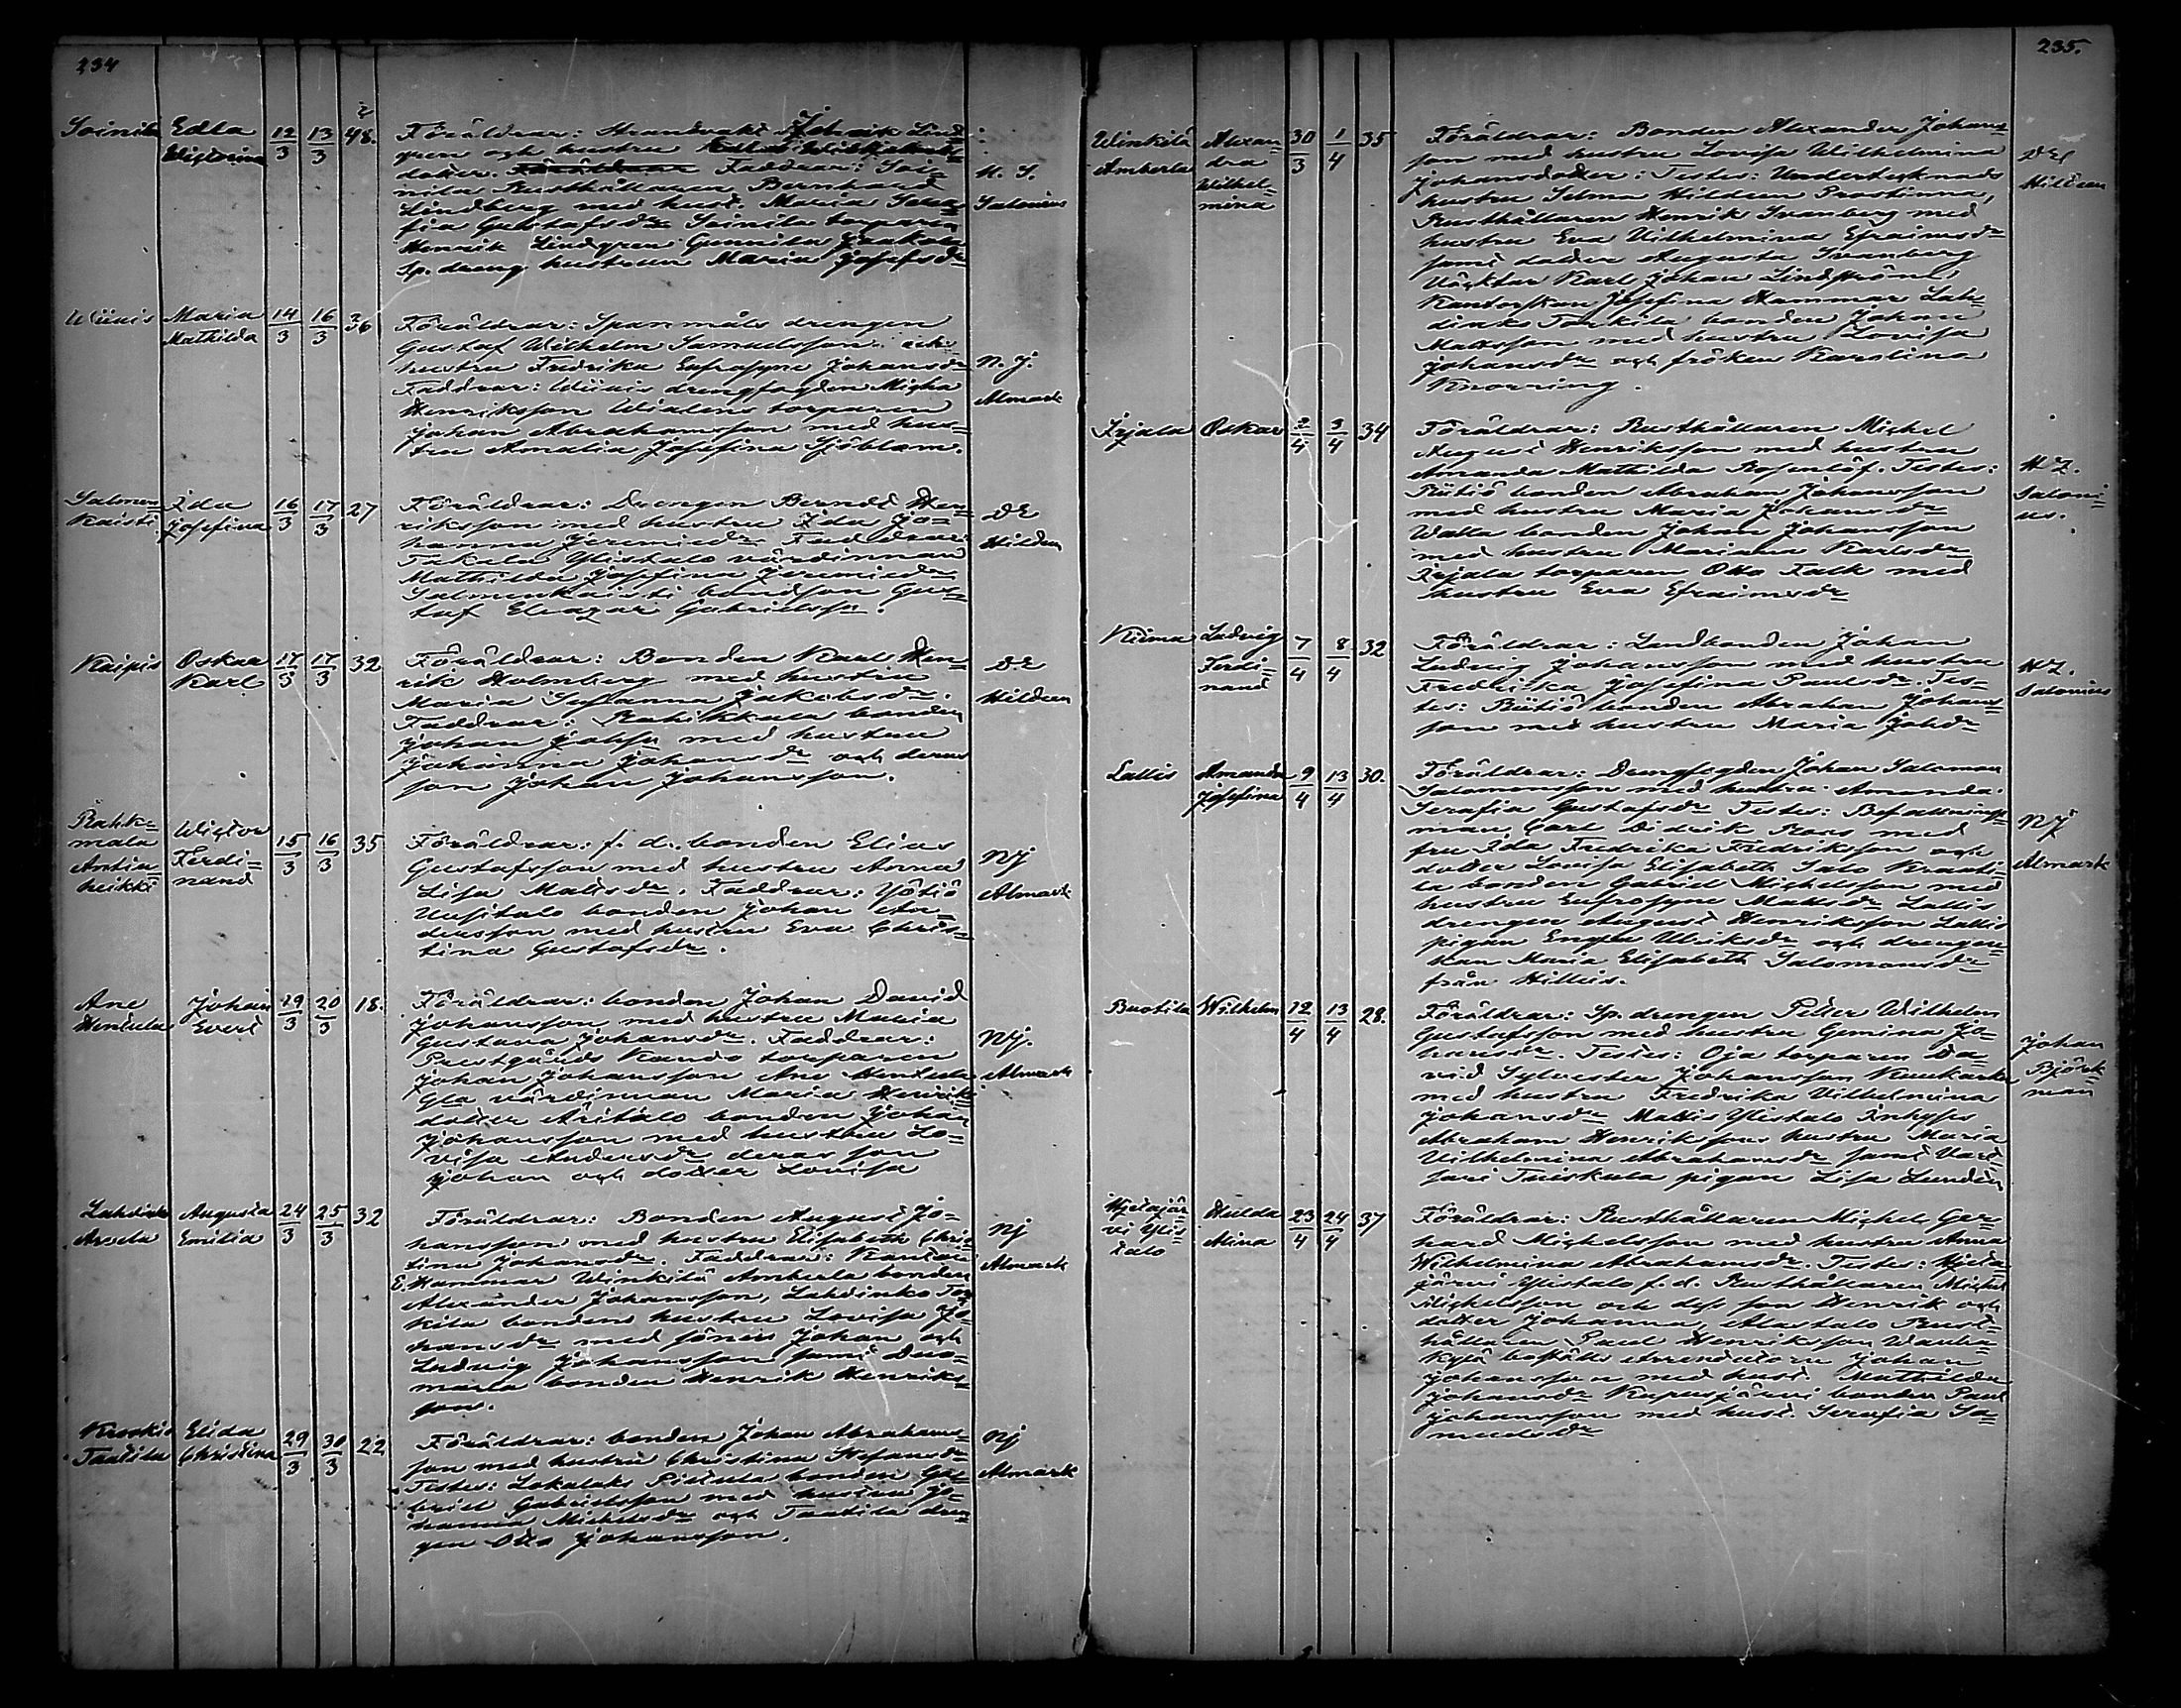 234
Soinila Edla Wictorina 12/3 13/3 48.
Föräldrar: Strandvakt Johan Lind-
gren och hustru
dotter. Föräldrar Faddrar: Soi-
nila Rusthållaren Bernhard
Lindberg med hust. Maria Sera-
fia Gustafsdr Soinila torparen
Henrik Lindgren Gunnila Jaakola
Sp. dreng hustrun Maria Josefsdr
H. S.
Salonius
Maria Mathilda 14/3 16/3 36
Föräldrar: Spanmåls drengen
Gustaf Wilhelm Samuelsson och
hustru Fredrika Eufrosyne Johansdr
Faddrar: drengfogden Micha
Henriksson torparen
Johan Abrahamsson med hus-
tru Amalia Josefina Sjöblom.
N. J.
Almark
Ida Josefina 16/3 17/3 27
Föräldrar: Drengen Berndt Hen-
riksson med hustru Ida Jo-
hanna Jeremiedr Faddrar:
Takala Ylistalo värdinnan
Mathilda Josefina Jeremiedr
bondson Gus-
taf Eleazar Gabrielsson.
DE
Hildén
Kaipis Oskar Karl 17/3 17/3 32
Föräldrar: Bonden Karl Hen-
rik Holmberg med hustru
Maria Susanna Jakobsdr.
Faddrar: Rahikkala bonden
Johan med hustru
Johanna Johansdr och deras
son Johan Johansson.
DE
Hildeen
Rahk-
mala
Antin-
heikki
Wictor Ferdi-
nand 15/3 16/3 35
Föräldrar: f. d. bonden Elias
Gustafsson med hustru Anna
Lisa Mattsdr. Faddrar: Yötiö
Uusitalo bonden Johan An-
dersson med hustru Eva Chris-
tina Gustafsdr.
NJ
Almark
Ane
Hentula
Johan
Evert 29/3 20/3 18.
Föräldrar: bonden Johan David
Johansson med hustru Maria
Gustava Johansdr. Faddrar:
Prestgårds Kando torparen
Johan Johansson Ane Hentula
Gla värdinnan Maria Henriks-
dotter Äritalo bonden Johan
Johansson med hustru Lo-
visa Andersdr deras son
Johan och dotter Lovisa
NJ.
Almark
Lahdinko
Arsela
Augusta
Emilia 24/3 25/3 32
Föräldrar: Bonden August Jo-
hansson med hustru Elisabeth Chris-
tina Johansdr. Faddrar: Kantor
E. Hammar Winkilä Amberla bonden
Alexander Johansson, Lahdinko Tor-
kila bondens hustru Lovisa Jo-
hansdr med söner Johan och
Ludvig Johansson samt Duo-
marla bonden Henrik Henriks-
son.
NJ
Almark
Taatila
Elida
Christina 29/3 30/3 22
Föräldrar: bonden Johan Abrahams-
son med hustru Christina Stefansdr
Testes: Lokalaks Pietula bonden Ga-
briel Gabrielsson med hustru Jo-
hanna Michelsdr och Taatila dren-
gen Otto Johansson.
NJ
Almark
235.
Winkilä
Amberla
Alexan-
dra
Wilhel-
mina 30/3 1/4 35
Föräldrar: Bonden Alexander Johans-
son med hustru Lovisa Wilhelmina
Johansdotter: Testes: Undertecknads
hustru Selma Hildeen Prostinna,
Rusthållaren Henrik Svanberg med
hustru Eva Vilhelmina Efraimsdr
samt dotter Augusta Svanberg
Väktar Karl Johan Lindström,
Kantorskan Josefina Hammar Lah-
dinko Torkila bonden Johan
Mattsson med hustru Lovisa
Johansdr och fröken Karolina
Knorring.
DE
Hildeen
Irjala Oskar 2/4 3/4 34
Föräldrar: Rusthållaren Michel
August Henriksson med hustru
Amanda Mathilda Rosenlöf. Testes:
Riitiö bonden Abraham Johansson
med hustru Maria Johansdr
Walla bonden Johan Johansson
med hustru Mariana Karlsdr
Irjala torparen Otto Falk med
hustru Eva Efraimsdr
Saloni-
us.
Kiima
Ludvig
Ferdi-
nand 7/4 8/4 32
Föräldrar: Landbonden Johan
Ludvig Johansson med hustru
Fredrika Josefina Paulsdr. Tes-
tes: Riitiö bonden Abraham Johans-
son med hustru Maria Johdr
Salonius
Lallis
Amanda
Josefina 9/4 13/4 30.
Föräldrar: Drengfogden Johan Salomon
Salomonsson med hustru Amanda
Serafia Gustafsdr Testes: Befallnings-
man Carl Didrik Roos med
fru Ida Fredrika Fredrikson och
dotter Lovisa Elisabeth Salo Kraati-
la bonden Gabriel Michelsson med
hustru Eufrosyne Mattsdr Lallis
drengen August Henriksson Lallis
pigan Ulriksdr och drengen-
kan Maria Elisabeth Salomonsdr
från Hillis.
NJ
Almark
Buotila Wilhelm 12/4 13/4 28.
Föräldrar: Sp. drengen Petter Wilhelm
Gustafsson med hustru Gemina Jo-
hansdr. Testes: Oja torparen Da-
vid Sylvester Johansson
med hustru Fredrika Vilhelmina
Johansdr Mattis Ylistalo Inhyses
Abraham Henrikssons hustru Maria
Vilhelmina Abrahamsdr samt Vart-
sari Tuiskula pigan Lisa Lundén
Johan
Björk-
man
Hjetajär-
vi Ylis-
talo
Hulda
Alina 23/4 24/4 37
Föräldrar: Rusthållaren Michel Ger-
hard Michelsson med hustru Anna
Wilhelmina Abrahamsdr. Testes: Hjeta-
järvi Ylistalo f. d. Rusthållaren Michel
Michelsson och dess son Henrik och
dotter Johanna, Alastalo Rust-
hållaren Paul Henriksson
boställs Arrendatorn Johan
Johansson med hust. Mathilda
Johansdr bonden Paul
Johansson med hust. Serafia Sa-
muelsdr